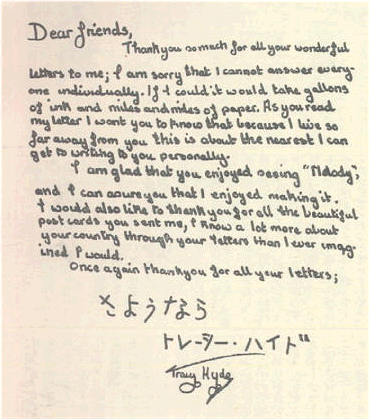 Dear friends,
Thankyou so much for all your wonderful
letters to me; I am sorry that I cannot answer every-
one individually. If I could it would take gallons
of ink and miles and miles of paper. As you read
my letter I want you to know that because I live so
far away from you this is about the nearest I can
get to writing to you personally.
I am glad that you enjoyed seeing "Melody",
and I can assure you that I enjoyed making it.
I would also like to thank you for all the beautiful
post cards you sent me, I know a lot more about
your country through your letters than I ever imag-
ined I would.
Once again thankyou for all your letters;
さようなら
トレーシー・ハイド
Tracy Hyde